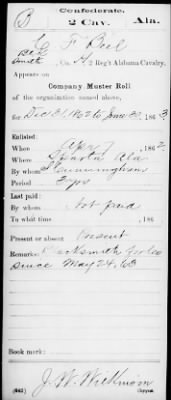 Confederate.
B
2 Cav. Ala.
G F Bell
Co. H, 2 Reg't Alabama Cavalry.
Appears on
Company Muster Roll
of the organization named above,
for Dec 31, 1862 to June 30, 1863
Enlisted:
When Apr, 1862
Where Sparta Ala
By whom Cunningham
Period 3 yrs
Last paid:
By whom Not paid
To what time , 186
Present or absent Present
Remarks: Blacksmith
since May 24, 63
Book mark:
J. W. Wilkinson
(642) Copyist.